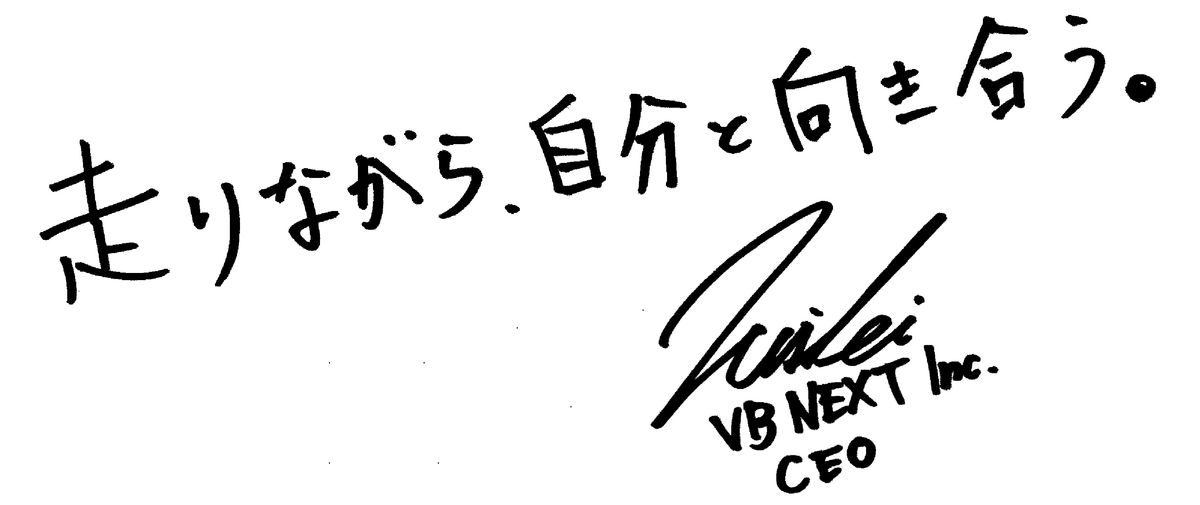 走りながら、自分と向き合う。
VB NEXT Inc.
CEO